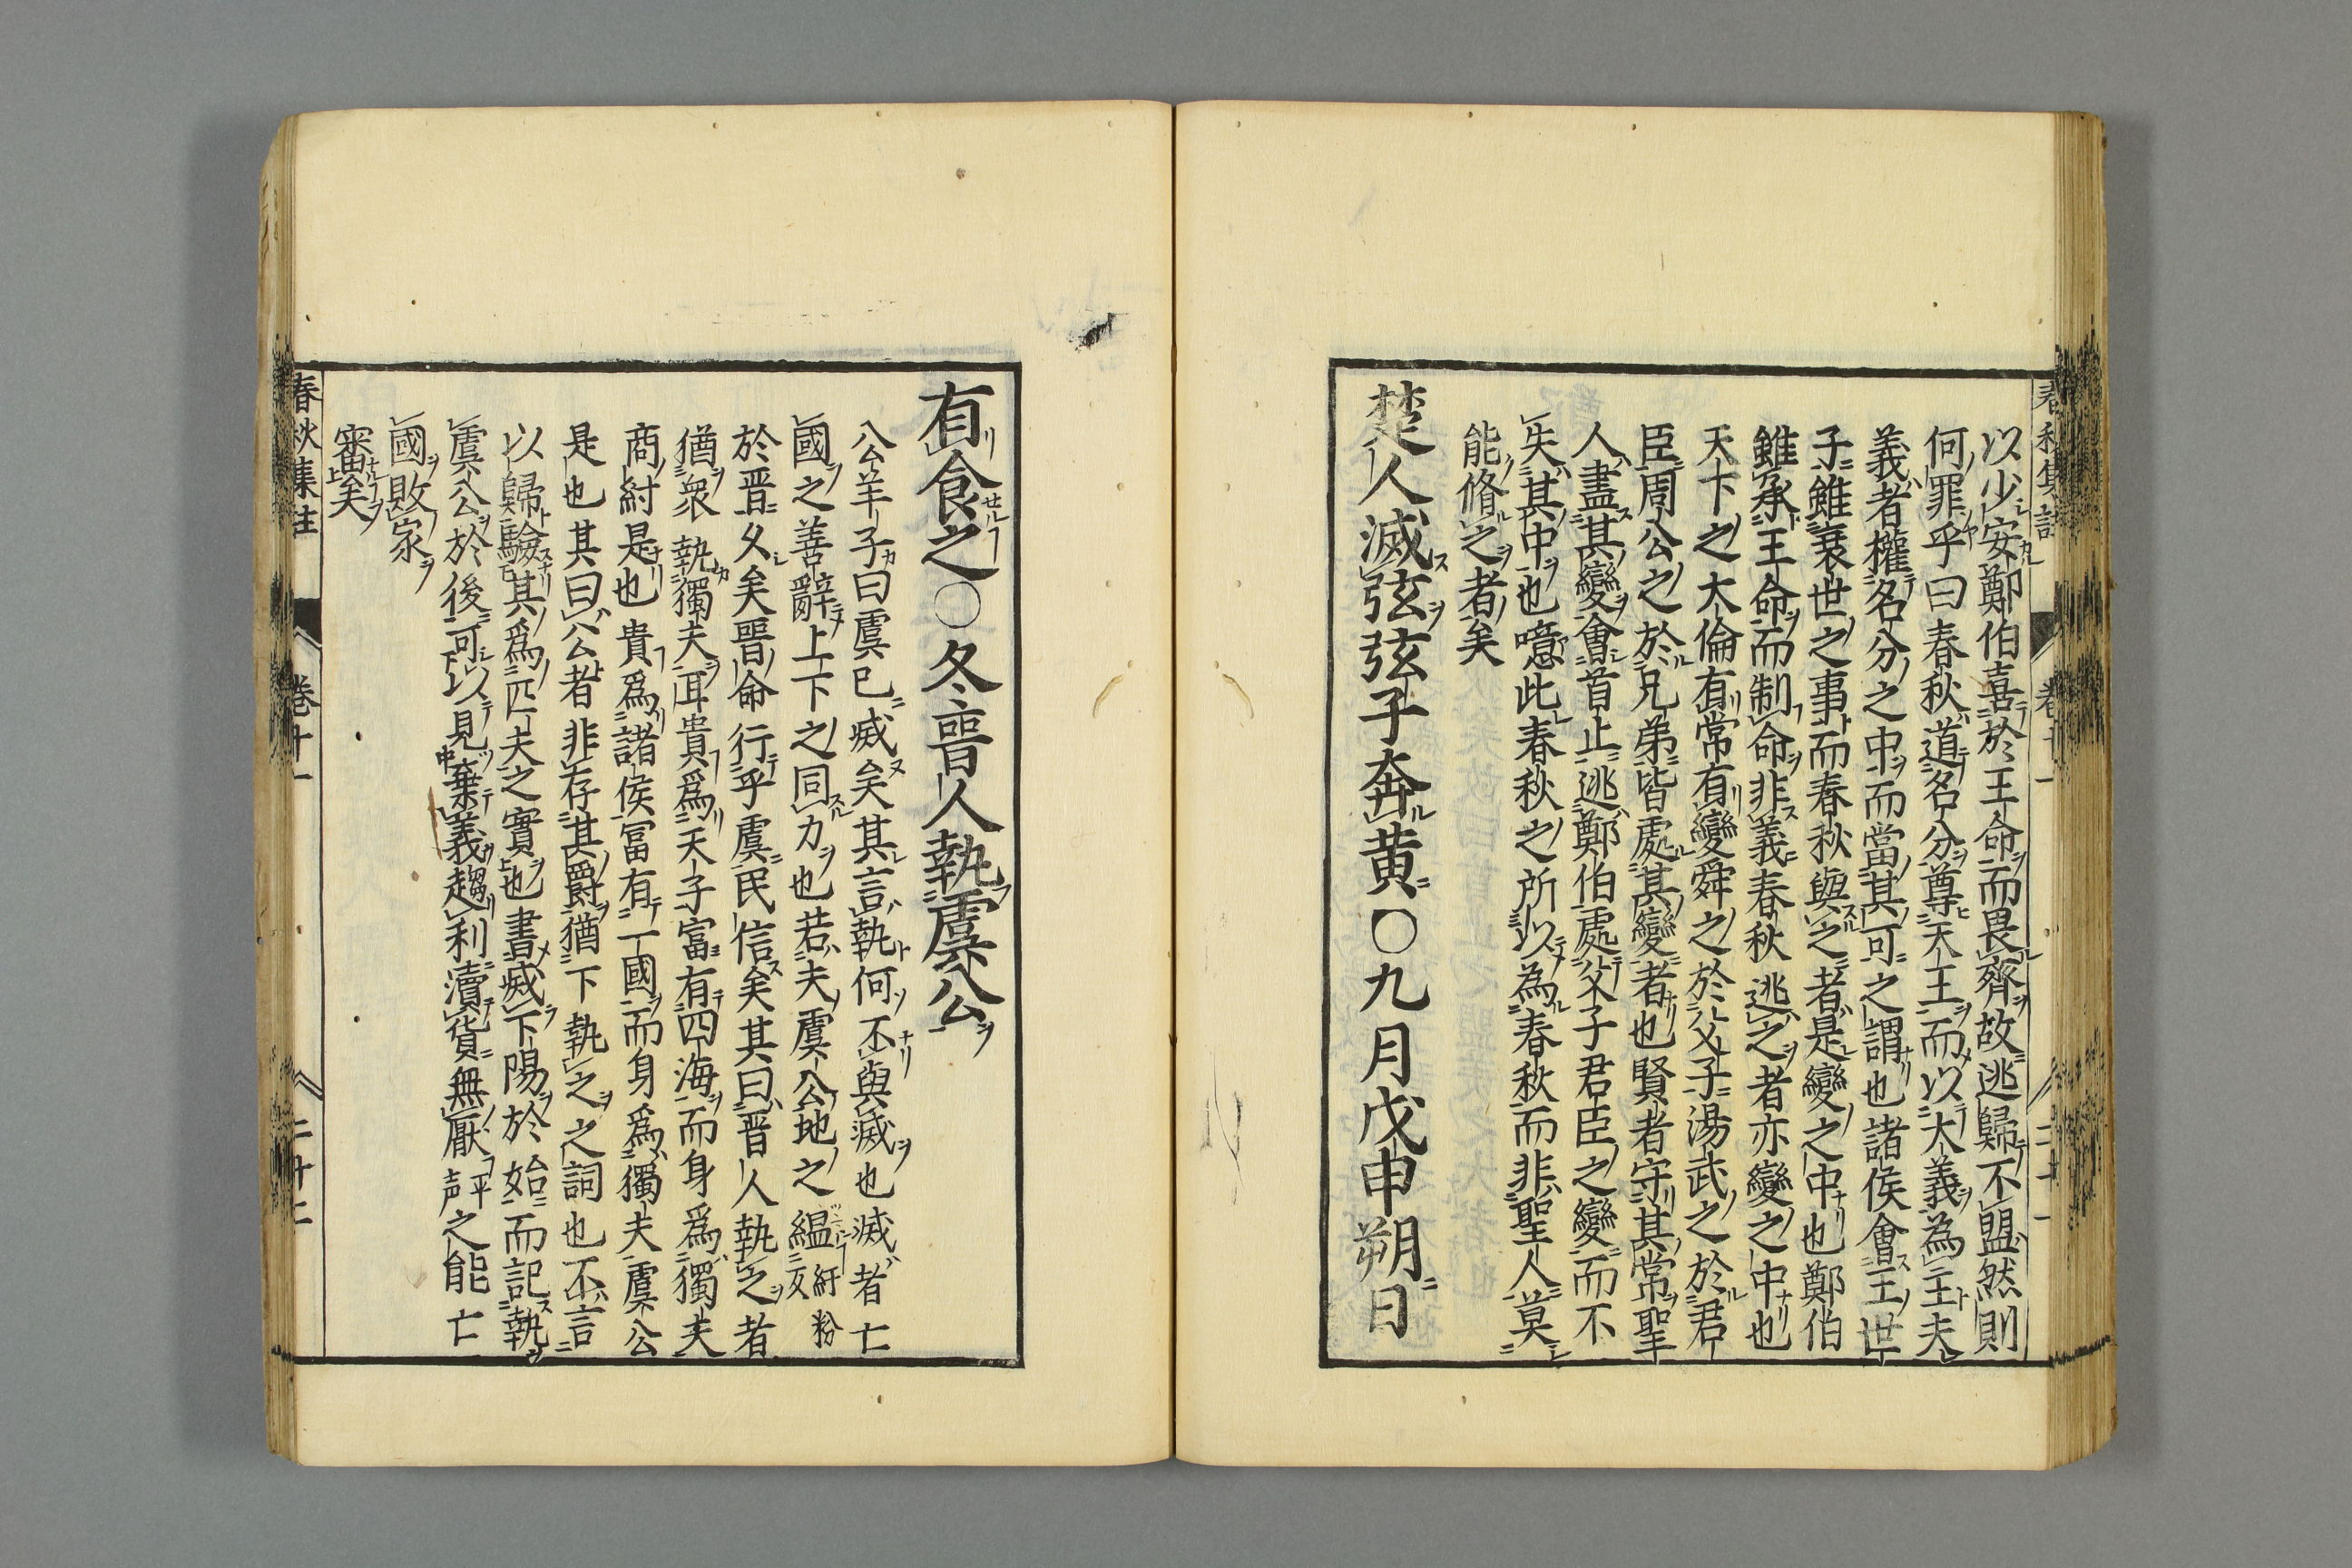 以少安鄭伯喜於王命而畏齊故逃歸不盟然則
何罪乎曰春秋道名分尊天王而以大義為主夫
義者權名分之中而當其可之謂也諸侯會王世
子雖衰世之事而春秋與之者是變之中也鄭伯
雖承王命而制命非義春秋逃之者亦變之中也
天下之大倫有常有變舜之於父子湯武之於君
臣周公之於兄弟皆處其變者也賢者守其常聖
人盡其變會首止逃鄭伯處父子君臣之變而不
失其中也噫此春秋之所以為春秋而非聖人莫
能脩之者矣
楚人滅弦弦子奔黄〇九月戊申朔日
春秋集註 卷十一 二十一
有食之〇冬晉人執虞公
公羊子曰虞已滅矣其言執何不與滅也滅者亡
國之善辭上下之同力也若夫虞公地之緼紆粉反
於晋久矣晋命行乎虞民信矣其曰晋人執之者
猶衆執獨夫耳貴爲天子富有四海而身爲獨夫
商紂是也貴爲諸侯冨有一國而身爲獨夫虞公
是也其曰公者非存其爵猶下執之之詞也不言
以歸驗其爲匹夫之實也書滅下陽於始而記執
虞公於後可以見棄義趨利瀆貨無厭平声之能亡
國敗家
審矣
春秋集註 卷十一 二十二